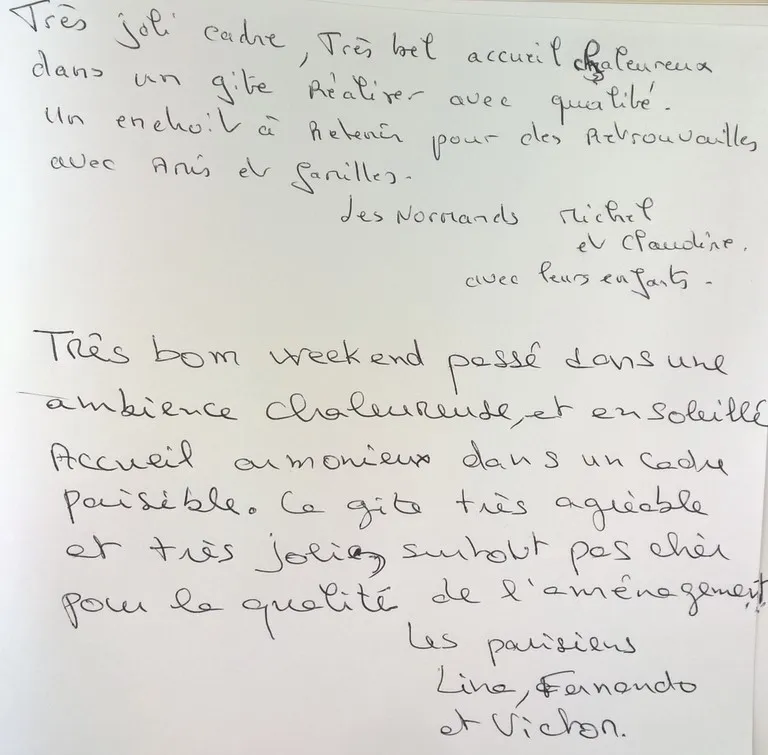 Très joli cadre, Très bel accueil chaleureux
dans un gite Réaliser avec qualité.
Un endroit à Retenir pour des Retrouvailles
avec Amis et familles.
des Normands Michel
et Claudine.
avec leurs enfants.
Três bom weekend passé dans une
ambience chaleureuse, et ensoleillé
Accueil armonieux dans un cadre
paisible. Ce gite très agréable
et très jolie, surtout pas chèr
pour la qualité de l'aménagement
Les parisiens
Lina, Fernando
et